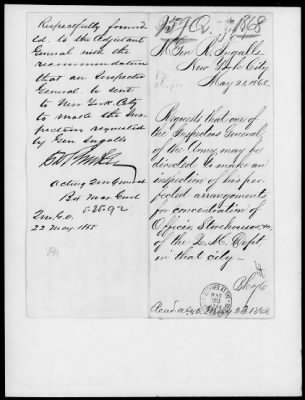 Respectfully forward
ed. to the Adjutant
General with the
recommendation
that an Inspector
General be sent
to New York City
to make the Ins-
pection requested
by Gen Ingalls
Acting Qm General
Bvt Maj Genl
Q.M.G.O.
22 May 1868
1868
R. Ingalls
New York City
May 21, 1868.
Requests that one of
the Inspectors General,
of the Army, may be
directed to make an
inspection of his per-
fected arrangements
for concentration of
Offices, Storehouses, &c,
of the Q. M. Dept.
in that city —
MAY
22